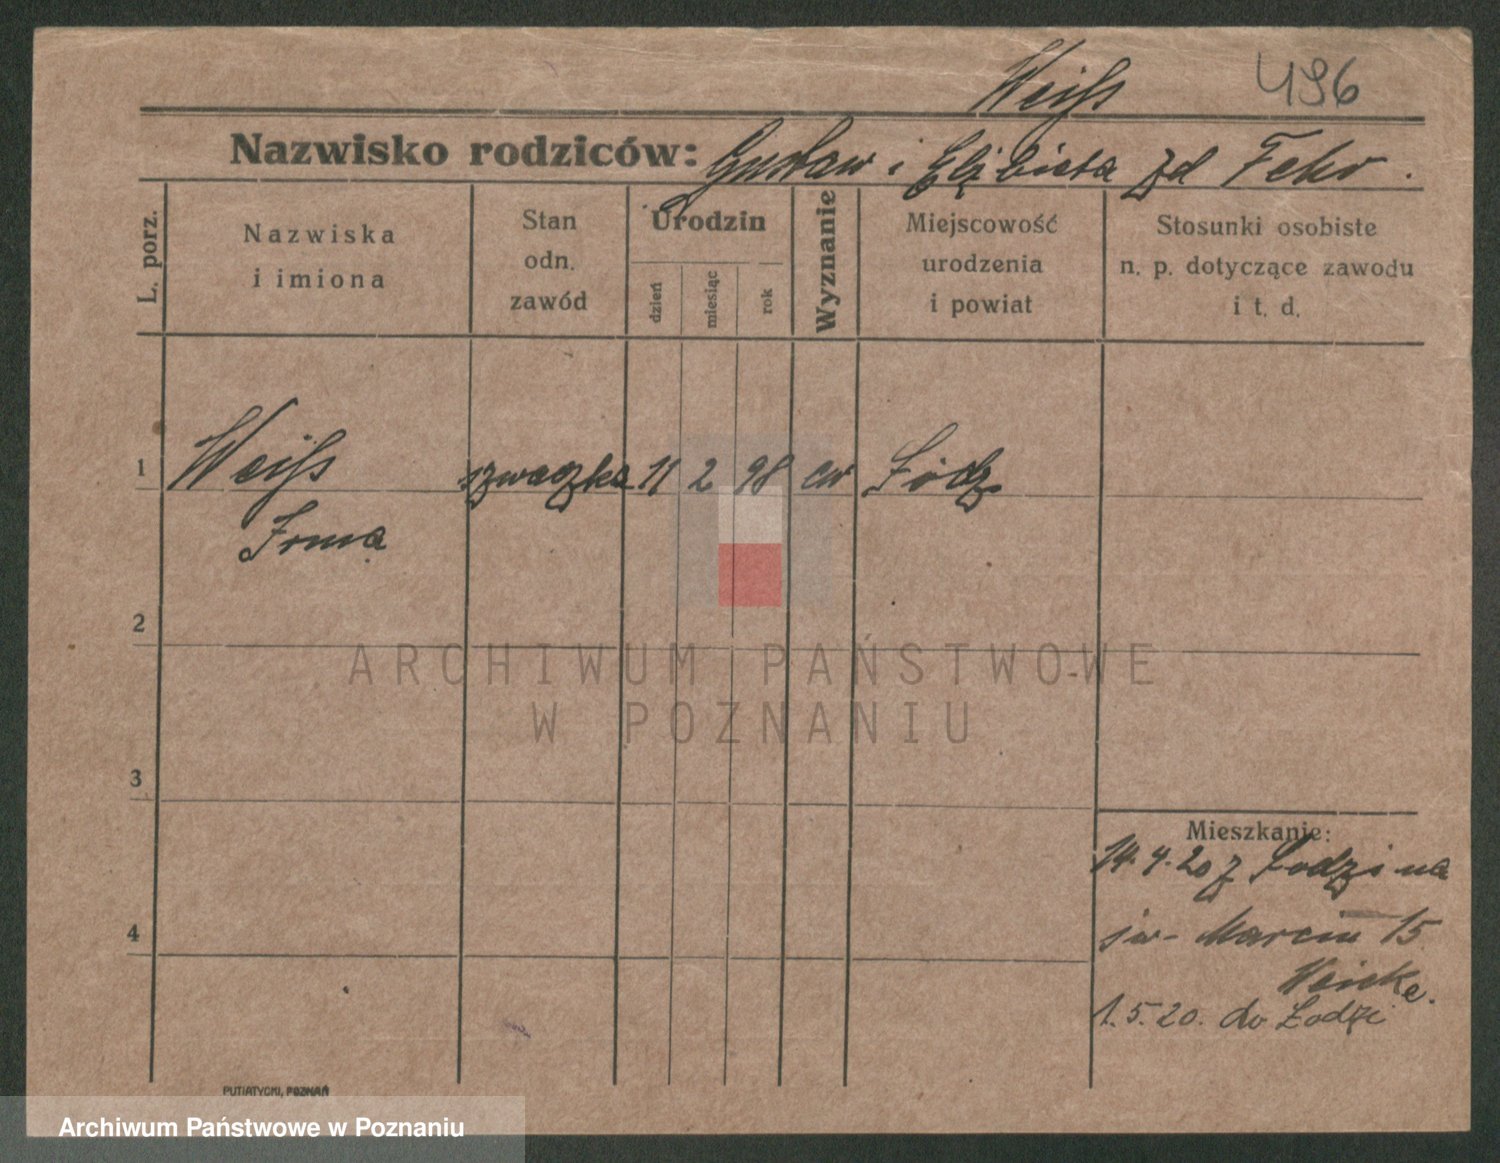 Weiss 496
Nazwisko rodziców: Gustaw i Elżbieta zd Fehr.
L. porz.
Nazwiska
i imiona
Stan
odn.
zawód
Urodzin
dzień
miesiąc
rok
Wyznanie
Miejscowość
urodzenia
i powiat
Stosunki osobiste
n. p. dotyczące zawodu
i t. d.
1 Weiss szwaczka 11 2 98 ew Łódź
Irma
2
ARCHIWUM PAŃSTWOWE
W POZNANIU
3
Mieszkanie:
14.4.20 z Łodzi na
św. Marcin 15
4
1.5.20. do Łodzi
PUTIATYCKI, POZNAŃ
Archiwum Państwowe w Poznaniu